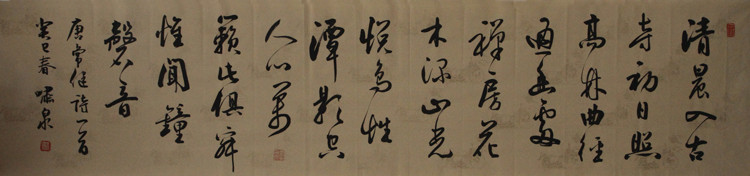 清晨入古
寺初日照
高林曲徑
通幽處
禪房花
木深山光
悅鳥性
潭影空
人心萬
籟此俱寂
惟聞鐘
磬音
唐常建詩一首
癸巳春嘯泉